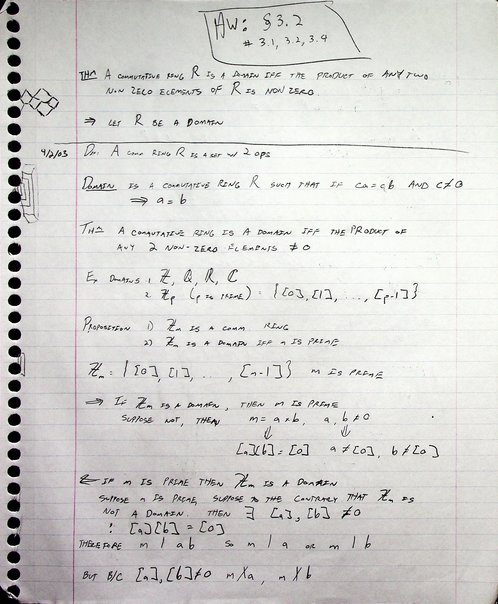 HW: §3.2
# 3.1, 3.2, 3.4
Thm A commutative ring R is a domain iff the product of any two
non zero elements of R is non zero.
⇒ Let R be a domain
4/2/03 Dn: A comm ring R is a set w/ 2 ops
Domain is a commutative ring R such that if ca=cb and c≠0
⇒ a=b
Thm A commutative ring is a domain iff the product of
any 2 non-zero elements ≠0
Ex Domains 1. ℤ, ℚ, ℝ, ℂ
2. ℤp (p is prime) = {[0],[1], ..., [p-1]}
Proposition 1) ℤm is a comm. ring
2) ℤm is a domain iff m is prime
ℤm = {[0], [1], ..., [m-1]} m is prime
⇒ If ℤm is a domain, then m is prime
Suppose not, then m=a×b, a, b≠0
⇓ ⇓
[a][b]=[0] a≠[0], b≠[0]
⇐ If m is prime then ℤm is a domain
Suppose m is prime, suppose to the contrary that ℤm is
not a domain. Then ∃ [a], [b] ≠0
: [a][b] = [0]
Therefore m | ab so m | a or m | b
But b/c [a], [b]≠0 m∤a, m∤b